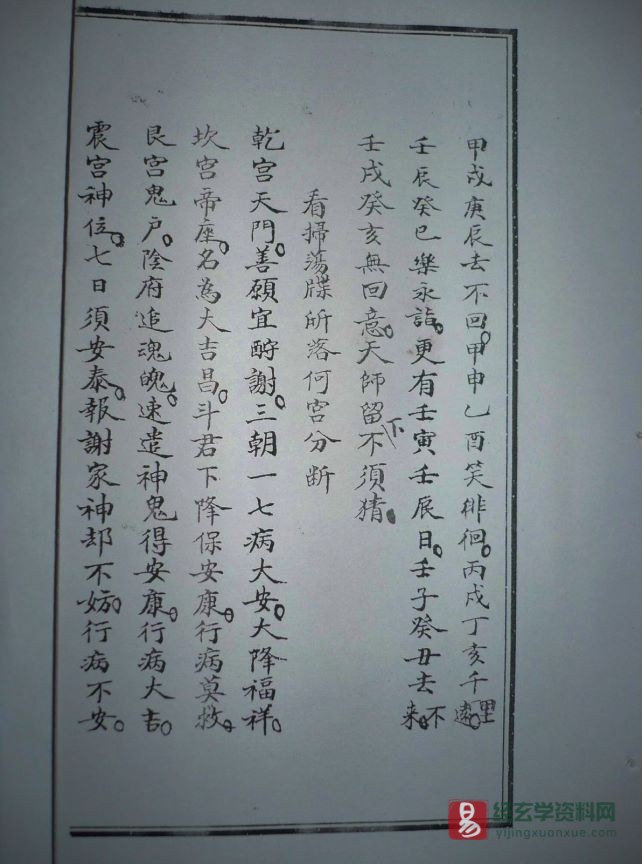 甲戍庚辰去不回。甲申乙酉笑徘徊。丙戍丁亥千里遠。
壬辰癸巳樂永詣。更有壬寅壬辰日。壬子癸丑去不来。
壬戍癸亥無回意。天師留下不須猜。
看掃蕩牒所落何宮分断
乾宮天門。善願宜酧謝。三朝一七病大安。大降福祥。
坎宮帝座。名為大吉昌。斗君下降保安康。行病莫救。
艮宮鬼户。陰府追魂魄。速遣神鬼得安康。行病大吉。
震宮神位。七日須安泰。報謝家神却不妨。行病不安。
易 经玄学资料网
yijingxuanxue.com